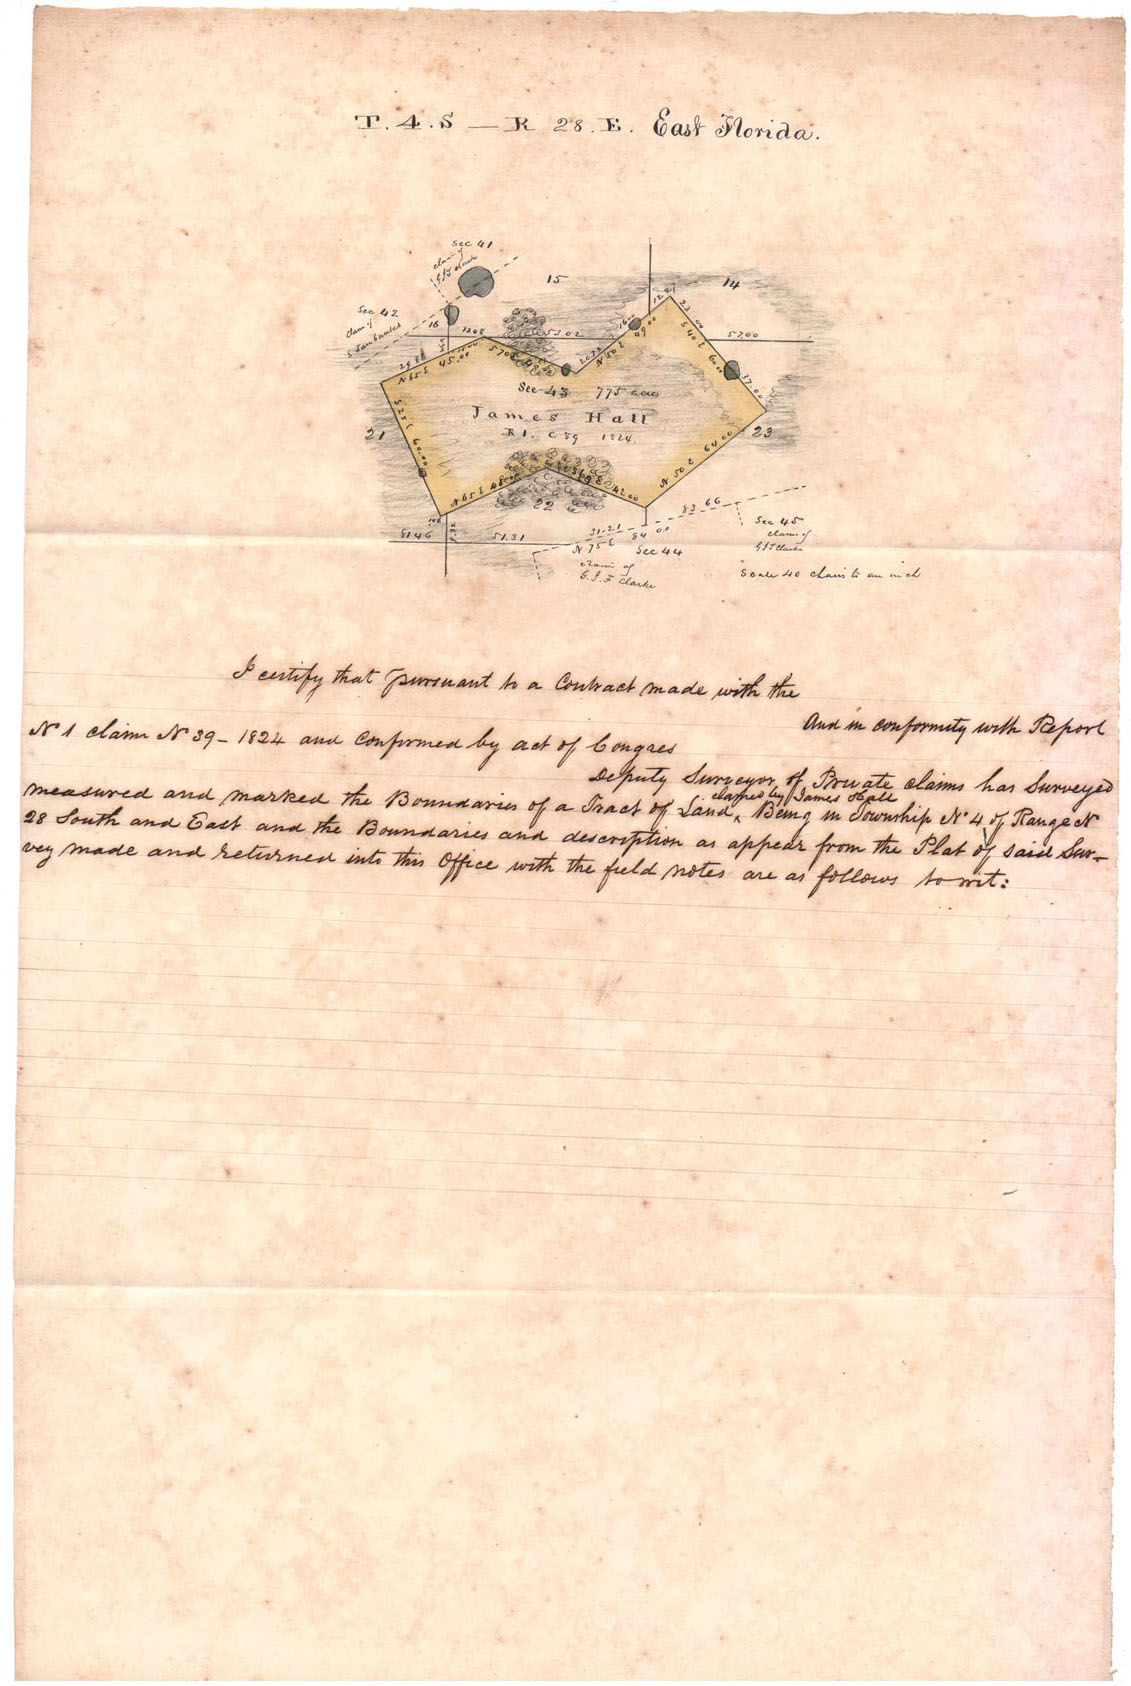 T. 4. S — R 28. E. East Florida.
Sec 41
claim of
15
14
Sec 42
claim of
16
1208
53.02
57.00
23 00
S 40 E 60.00
37.00
N 50 E 49.00
N 65 E 45.00
Sec 43 775 acres
James Hall
R 1. C 39 1824
21
23
S 25 E 60.00
N 65 E 48.00
S 69 E 42.00
N 50 E 64.00
22
83.66
61.46
51.31
31.21
N 75 E 84 00
Sec 44
claim of
G.I.F Clarke
Sec 45
claim of
G I F Clarke
Scale 40 chains to an inch
I certify that pursuant to a Contract made with the
And in conformity with Report
N 1 claim N 39 - 1824 and Confirmed by act of Congres
Deputy Surveyor of Private claims has Surveyed
measured and marked the Boundaries of a Tract of Land claimed by James Hall Being in Township N 4 of Range N
28 South and East and the Boundaries and description as appear from the Plat of said Sur-
vey made and returned into this Office with the field notes are as follows to wit: